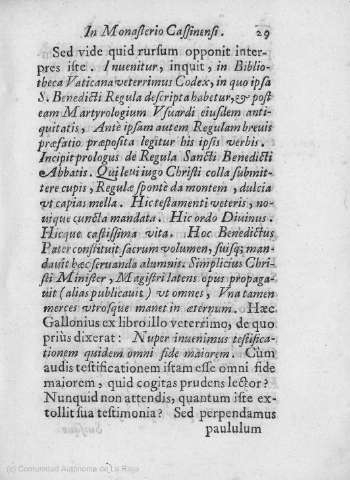 In Monasterio Cassinensi. 29
Sed vide quid rursum opponit inter-
pres iste. Inuenitur, inquit, in Biblio-
theca Vaticana veterrimus Codex, in quo ipsa
S. Benedicti Regula descripta habetur, & post
eam Martyrologium Vsuardi eiusdem anti-
quitatis, Ante ipsam autem Regulam breuis
præfatio præposita legitur his ipsis verbis.
Incipit prologus de Regula Sancti Benedicti
Abbatis. Qui leui iugo Christi colla submit-
tere cupis, Regulæ spontè da montem, dulcia
vt capias mella. Hic testamenti veteris, no-
uique cuncta mandata. Hic ordo Diuinus.
Hicque castissima vita. Hoc Benedictus
Pater constituit sacrum volumen, suisq; man-
dauit hæc seruanda alumnis. Simplicius Chri-
sti Minister, Magistri latens opus propaga-
uit (alias publicauit) vt omnes, Vna tamen
merces vtrosque manet in æternum. Hæc
Gallonius ex libro illo veterrimo, de quo
priùs dixerat: Nuper inuenimus testifica-
tionem quidem omni fide maiorem. Cùm
audis testificationem istam esse omni fide
maiorem, quid cogitas prudens lector?
Nunquid non attendis, quantum iste ex-
tollit sua testimonia? Sed perpendamus
paululum
(c) Comunidad Autónoma de La Rioja